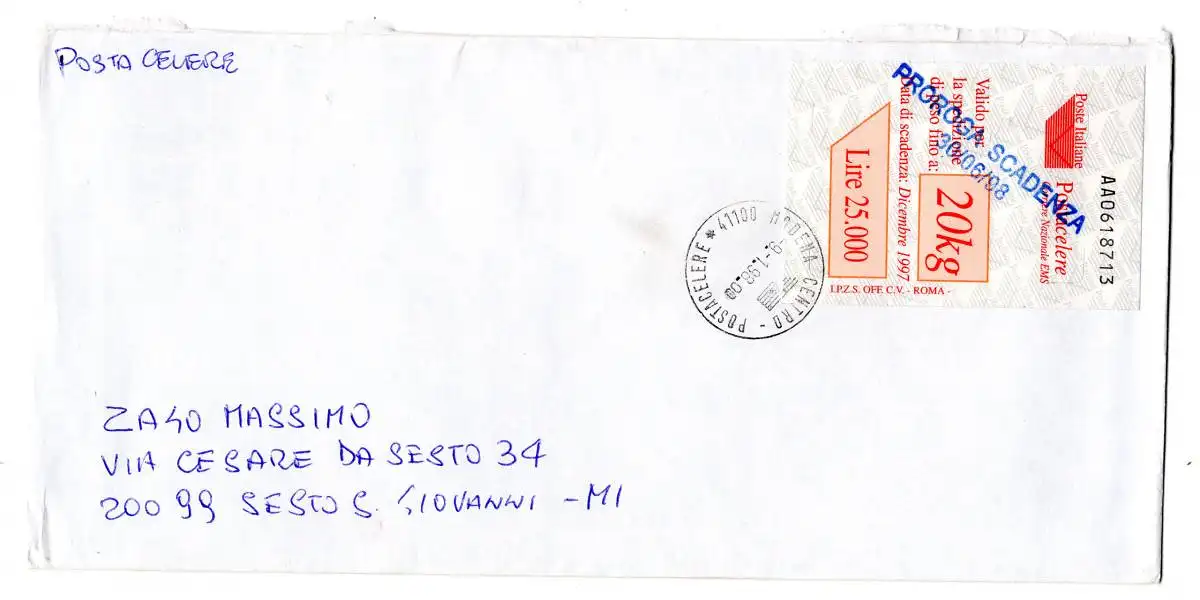 POSTA CELERE
Poste Italiane
Postacelere
Corriere Nazionale EMS
AA0618713
Valido per
la spedizione
di peso fino a:
20kg
Data di scadenza: Dicembre 1997
Lire 25.000
I.P.Z.S. OFF. C.V. - ROMA -
PROROGA SCADENZA
30/06/98
41100 MODENA CENTRO - POSTACELERE *
-9.-1.98.00
ZAGO MASSIMO
VIA CESARE DA SESTO 34
20099 SESTO S. GIOVANNI - MI